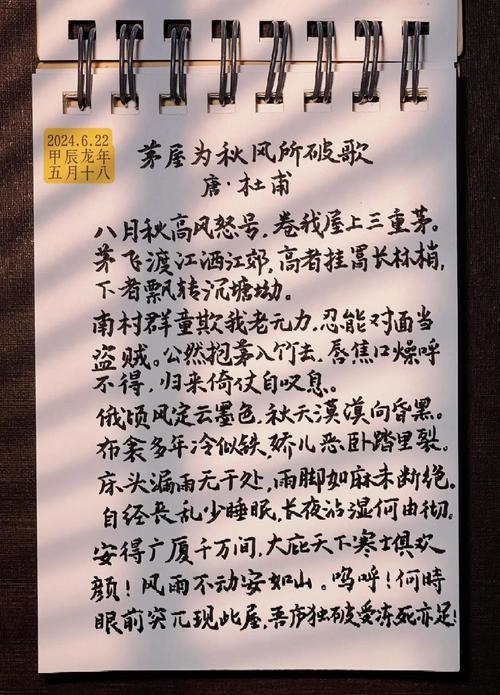 2024.6.22
甲辰龙年
五月十八
茅屋为秋风所破歌
唐·杜甫
八月秋高风怒号，卷我屋上三重茅。
茅飞渡江洒江郊，高者挂罥长林梢，
下者飘转沉塘坳。
南村群童欺我老无力，忍能对面当
盗贼。公然抱茅入竹去，唇焦口燥呼
不得，归来倚仗自叹息。
俄顷风定云墨色，秋天漠漠向昏黑。
布衾多年冷似铁，娇儿恶卧踏里裂。
床头漏雨无干处，雨脚如麻未断绝。
自经丧乱少睡眠，长夜沾湿何由彻。
安得广厦千万间，大庇天下寒士俱欢
颜！风雨不动安如山。呜呼！何時
眼前突兀现此屋，吾庐独破受冻死亦足！